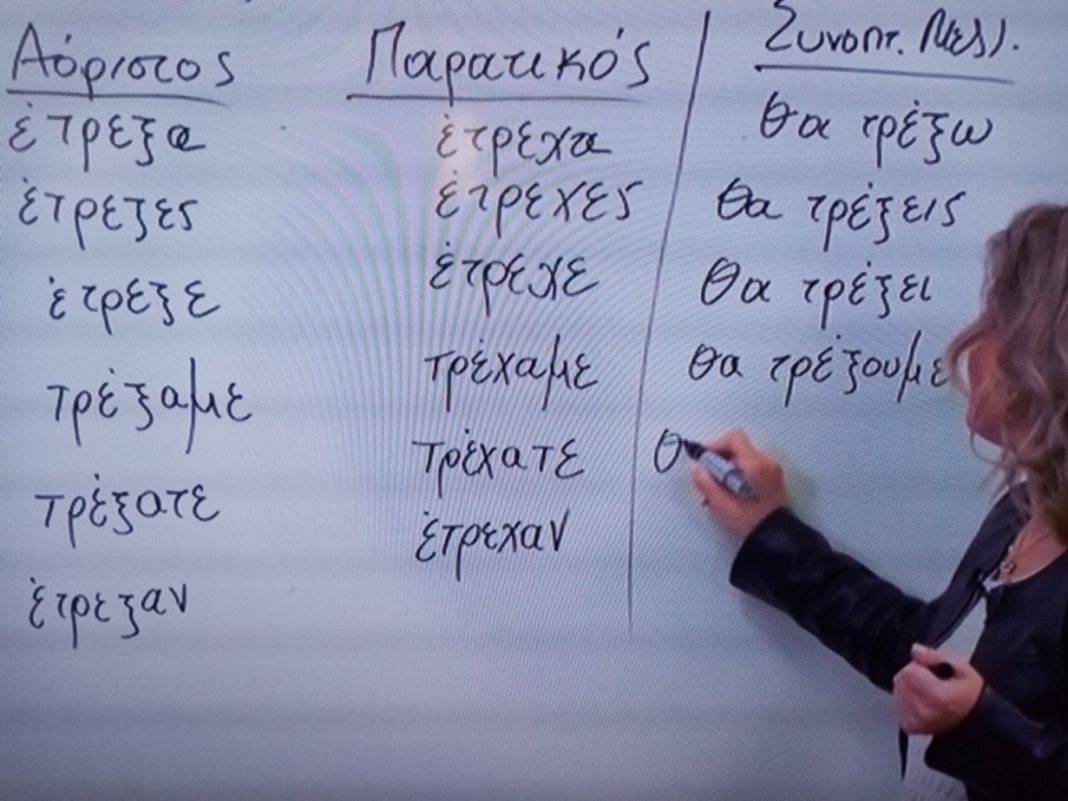 Αόριστος Παρατικός Συνοπτ. Μελλ.
έτρεξα έτρεχα θα τρέξω
έτρεξες έτρεχες θα τρέξεις
έτρεξε έτρεχε θα τρέξει
τρέξαμε τρέχαμε θα τρέξουμε
τρέξατε τρέχατε θ
έτρεξαν έτρεχαν